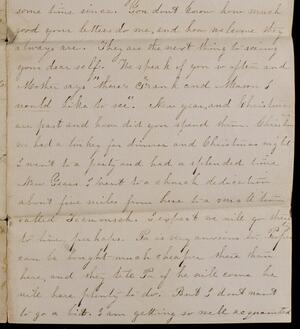 some time since. You don't know how much
good your letters do me, and how welcome they
always are. They are the next thing to seeing
your dear self. We speak of you so often and
Mother says "there's Frank and Mason I
would like to see". New year, and Christmas
are past and how did you spend them. Christmas
we had a turkey for dinner and Christmas night
I went to a party and had a splendid time
New Years I went to a church dedication
about five miles from here to a small town
called Tecumseh. I expect we will go there
to live perhaps. Pa is very anxious to.
can be bought much cheaper there than
here, and they tell Pa if he will come he
will have plenty to do. But I don't want
to go a bit. I am getting so well acquainted